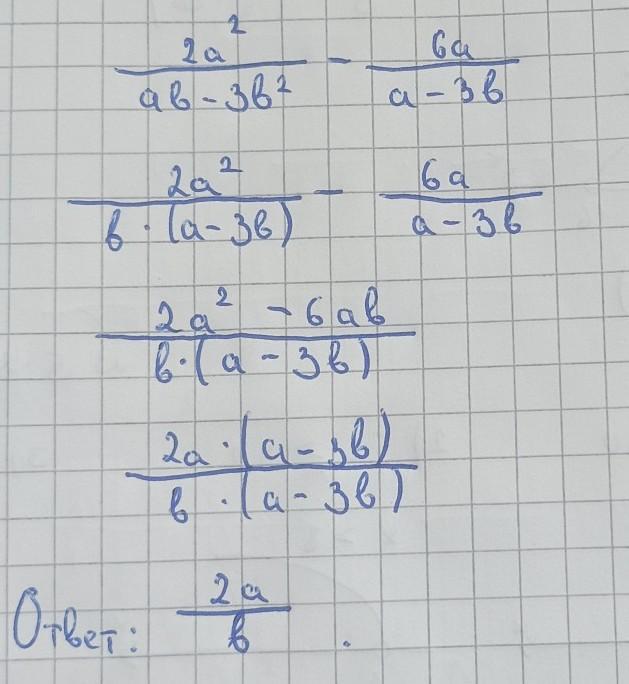 2a² / (ab - 3b²) - 6a / (a - 3b)
2a² / (b · (a - 3b)) - 6a / (a - 3b)
(2a² - 6ab) / (b · (a - 3b))
(2a · (a - 3b)) / (b · (a - 3b))
Ответ: 2a / b .